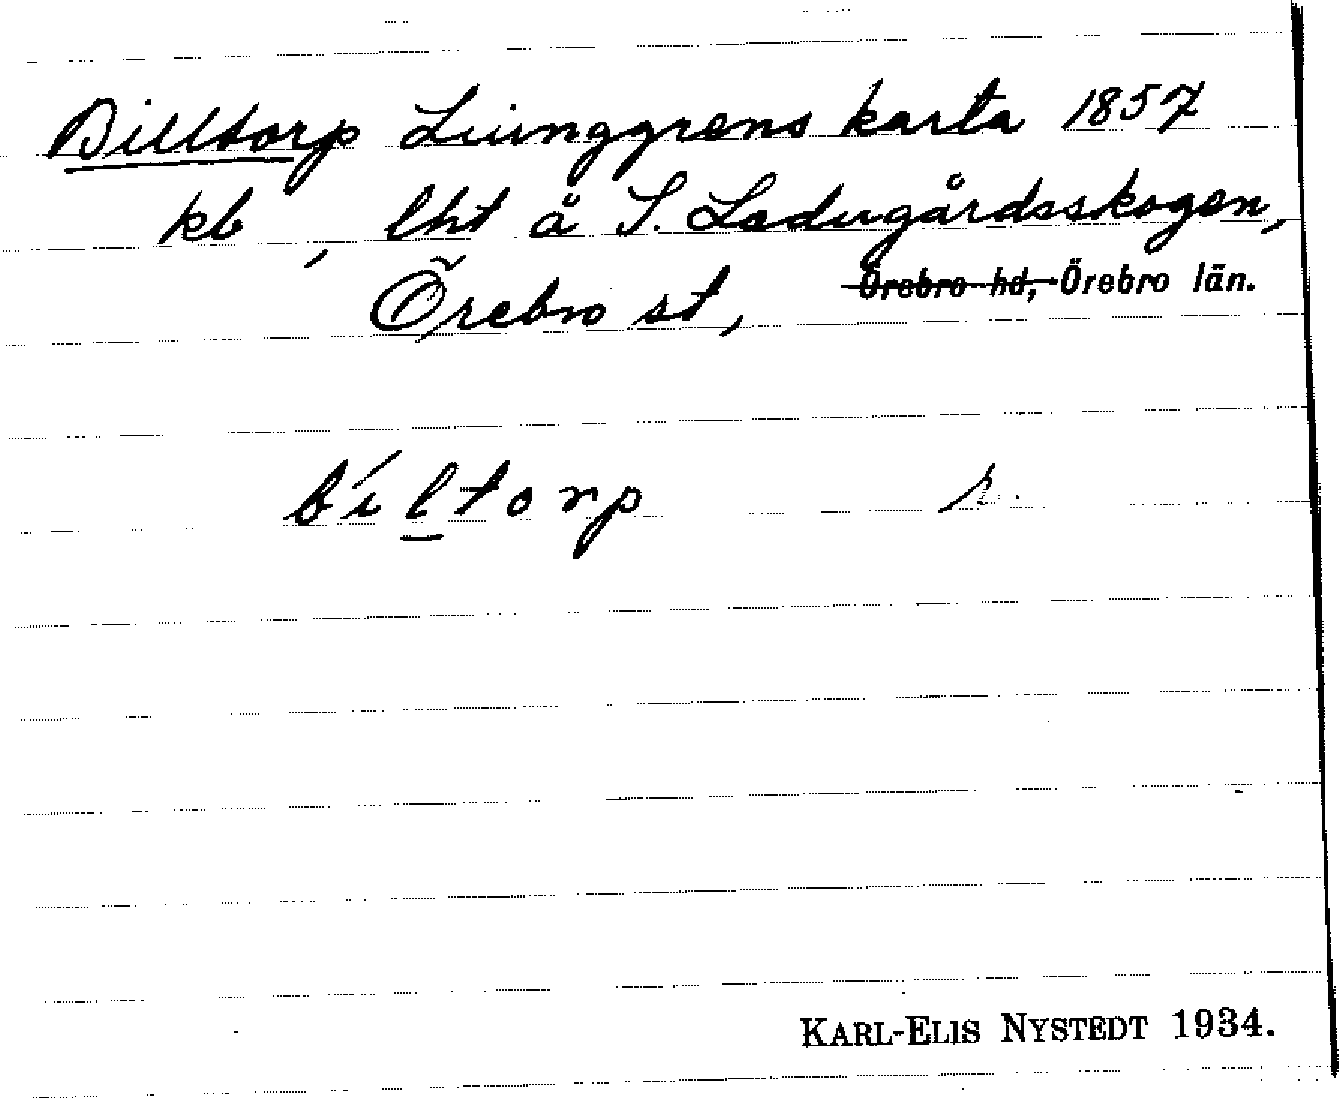 Billtorp Liunggrens karta 1857
kb, lht å S. Ladugårdsskogen,
Örebro st, Örebro hd, Örebro län.
bíltorp s.
KARL-ELIS NYSTEDT 1934.